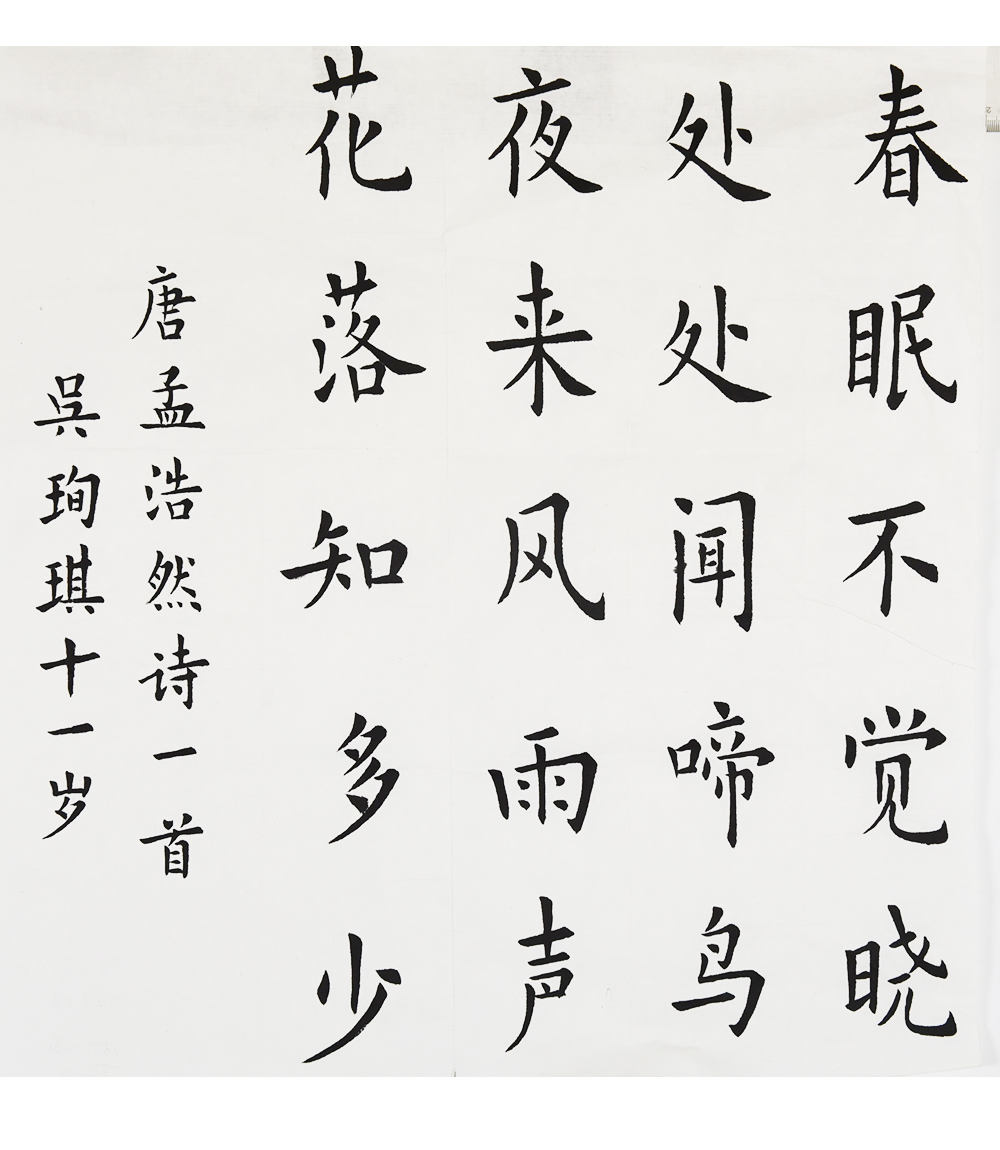 春眠不觉晓
处处闻啼鸟
夜来风雨声
花落知多少
唐孟浩然诗一首
吴珣琪十一岁